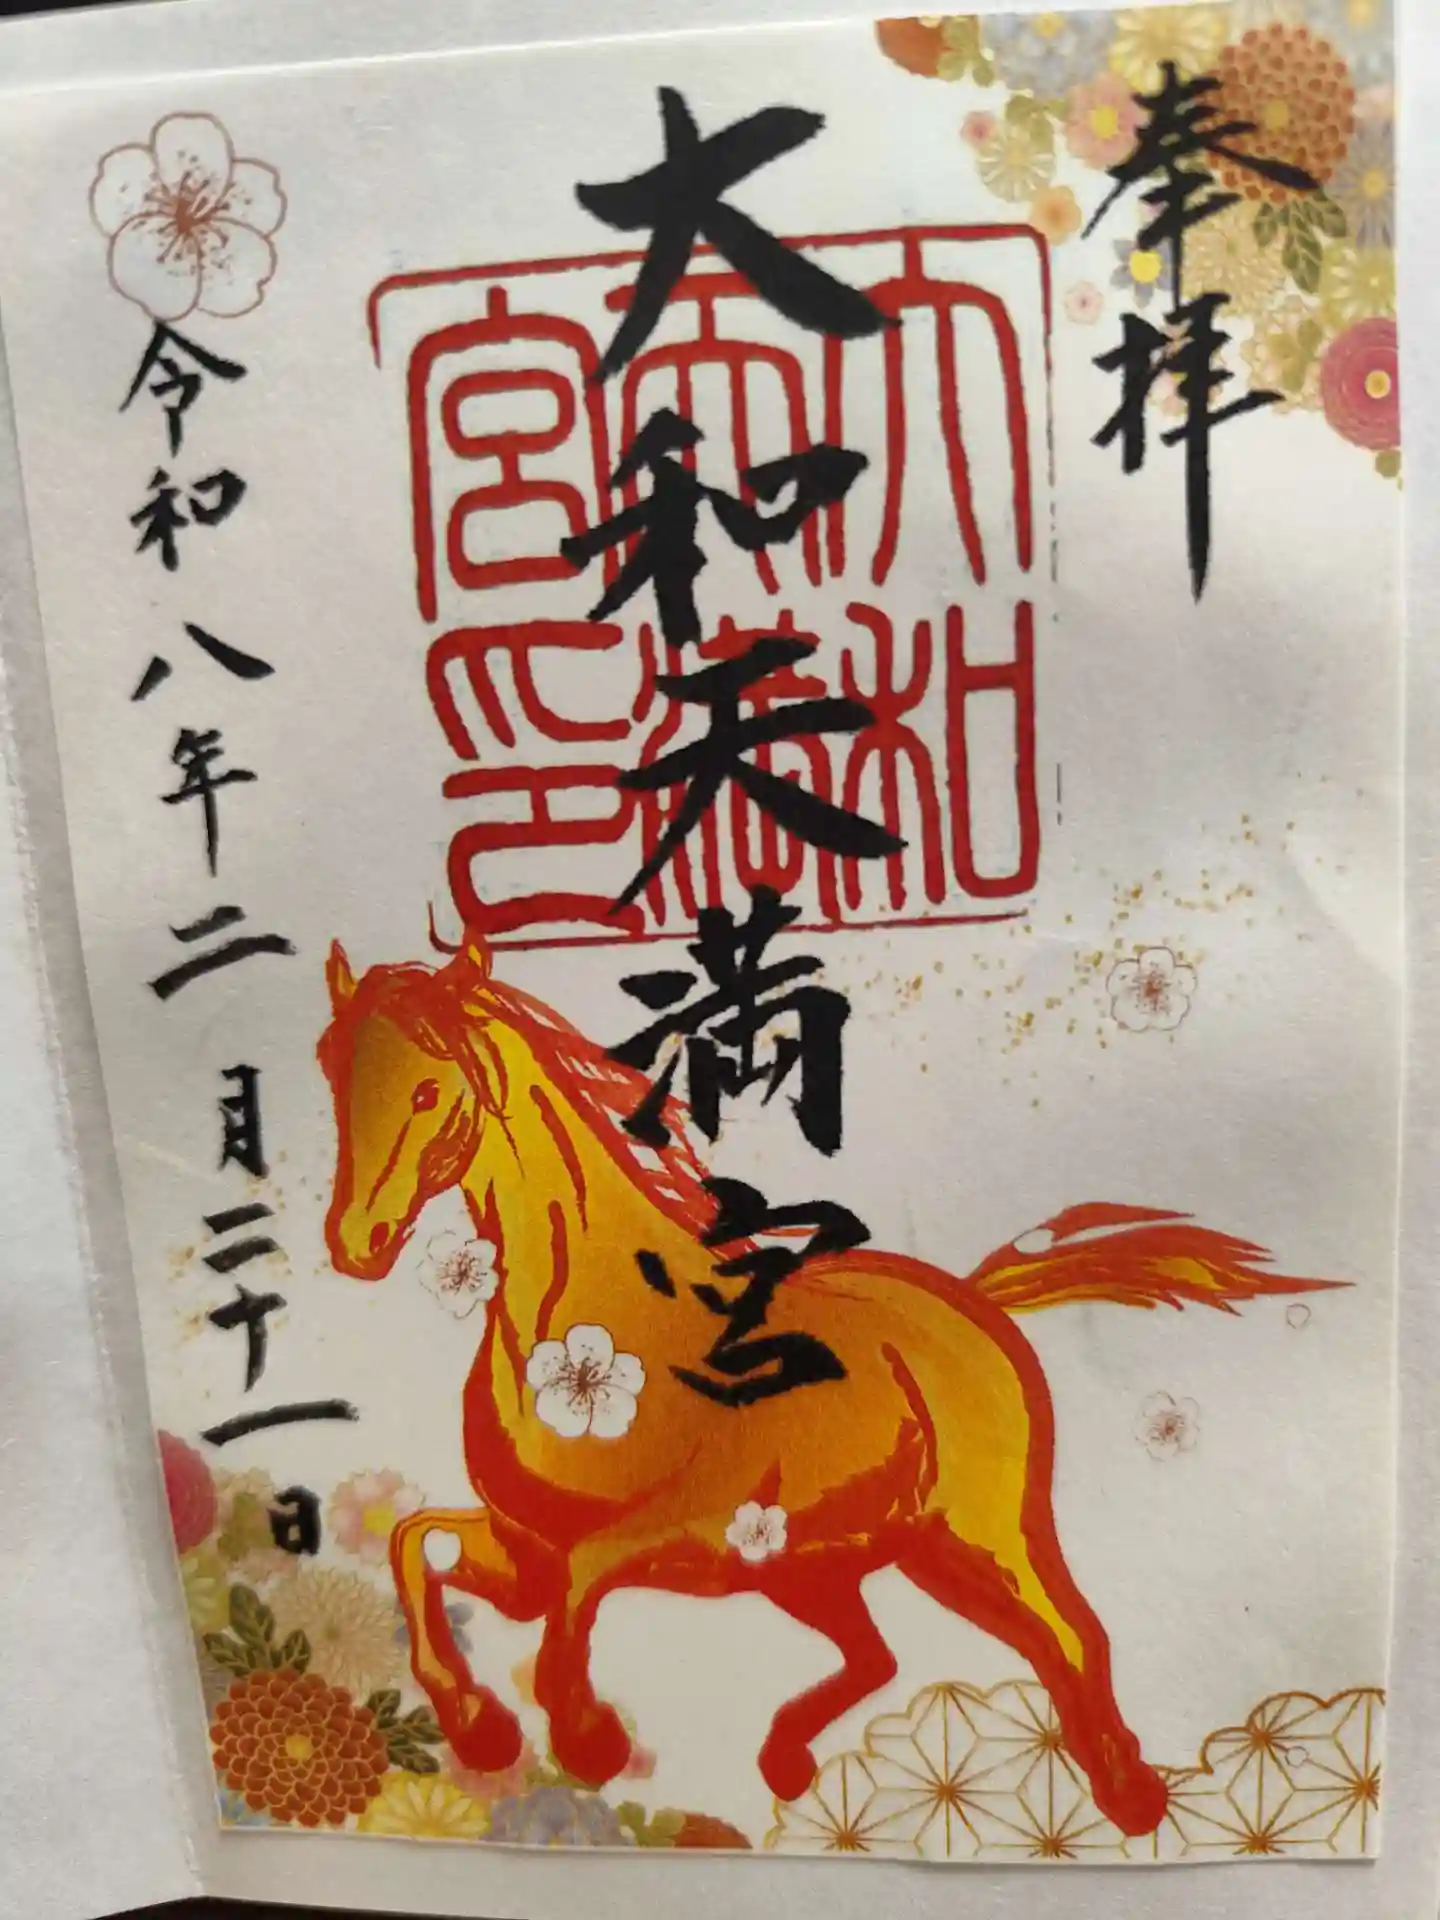 奉拝
大和天満宮
大和
天満
宮印
令和八年二月二十一日